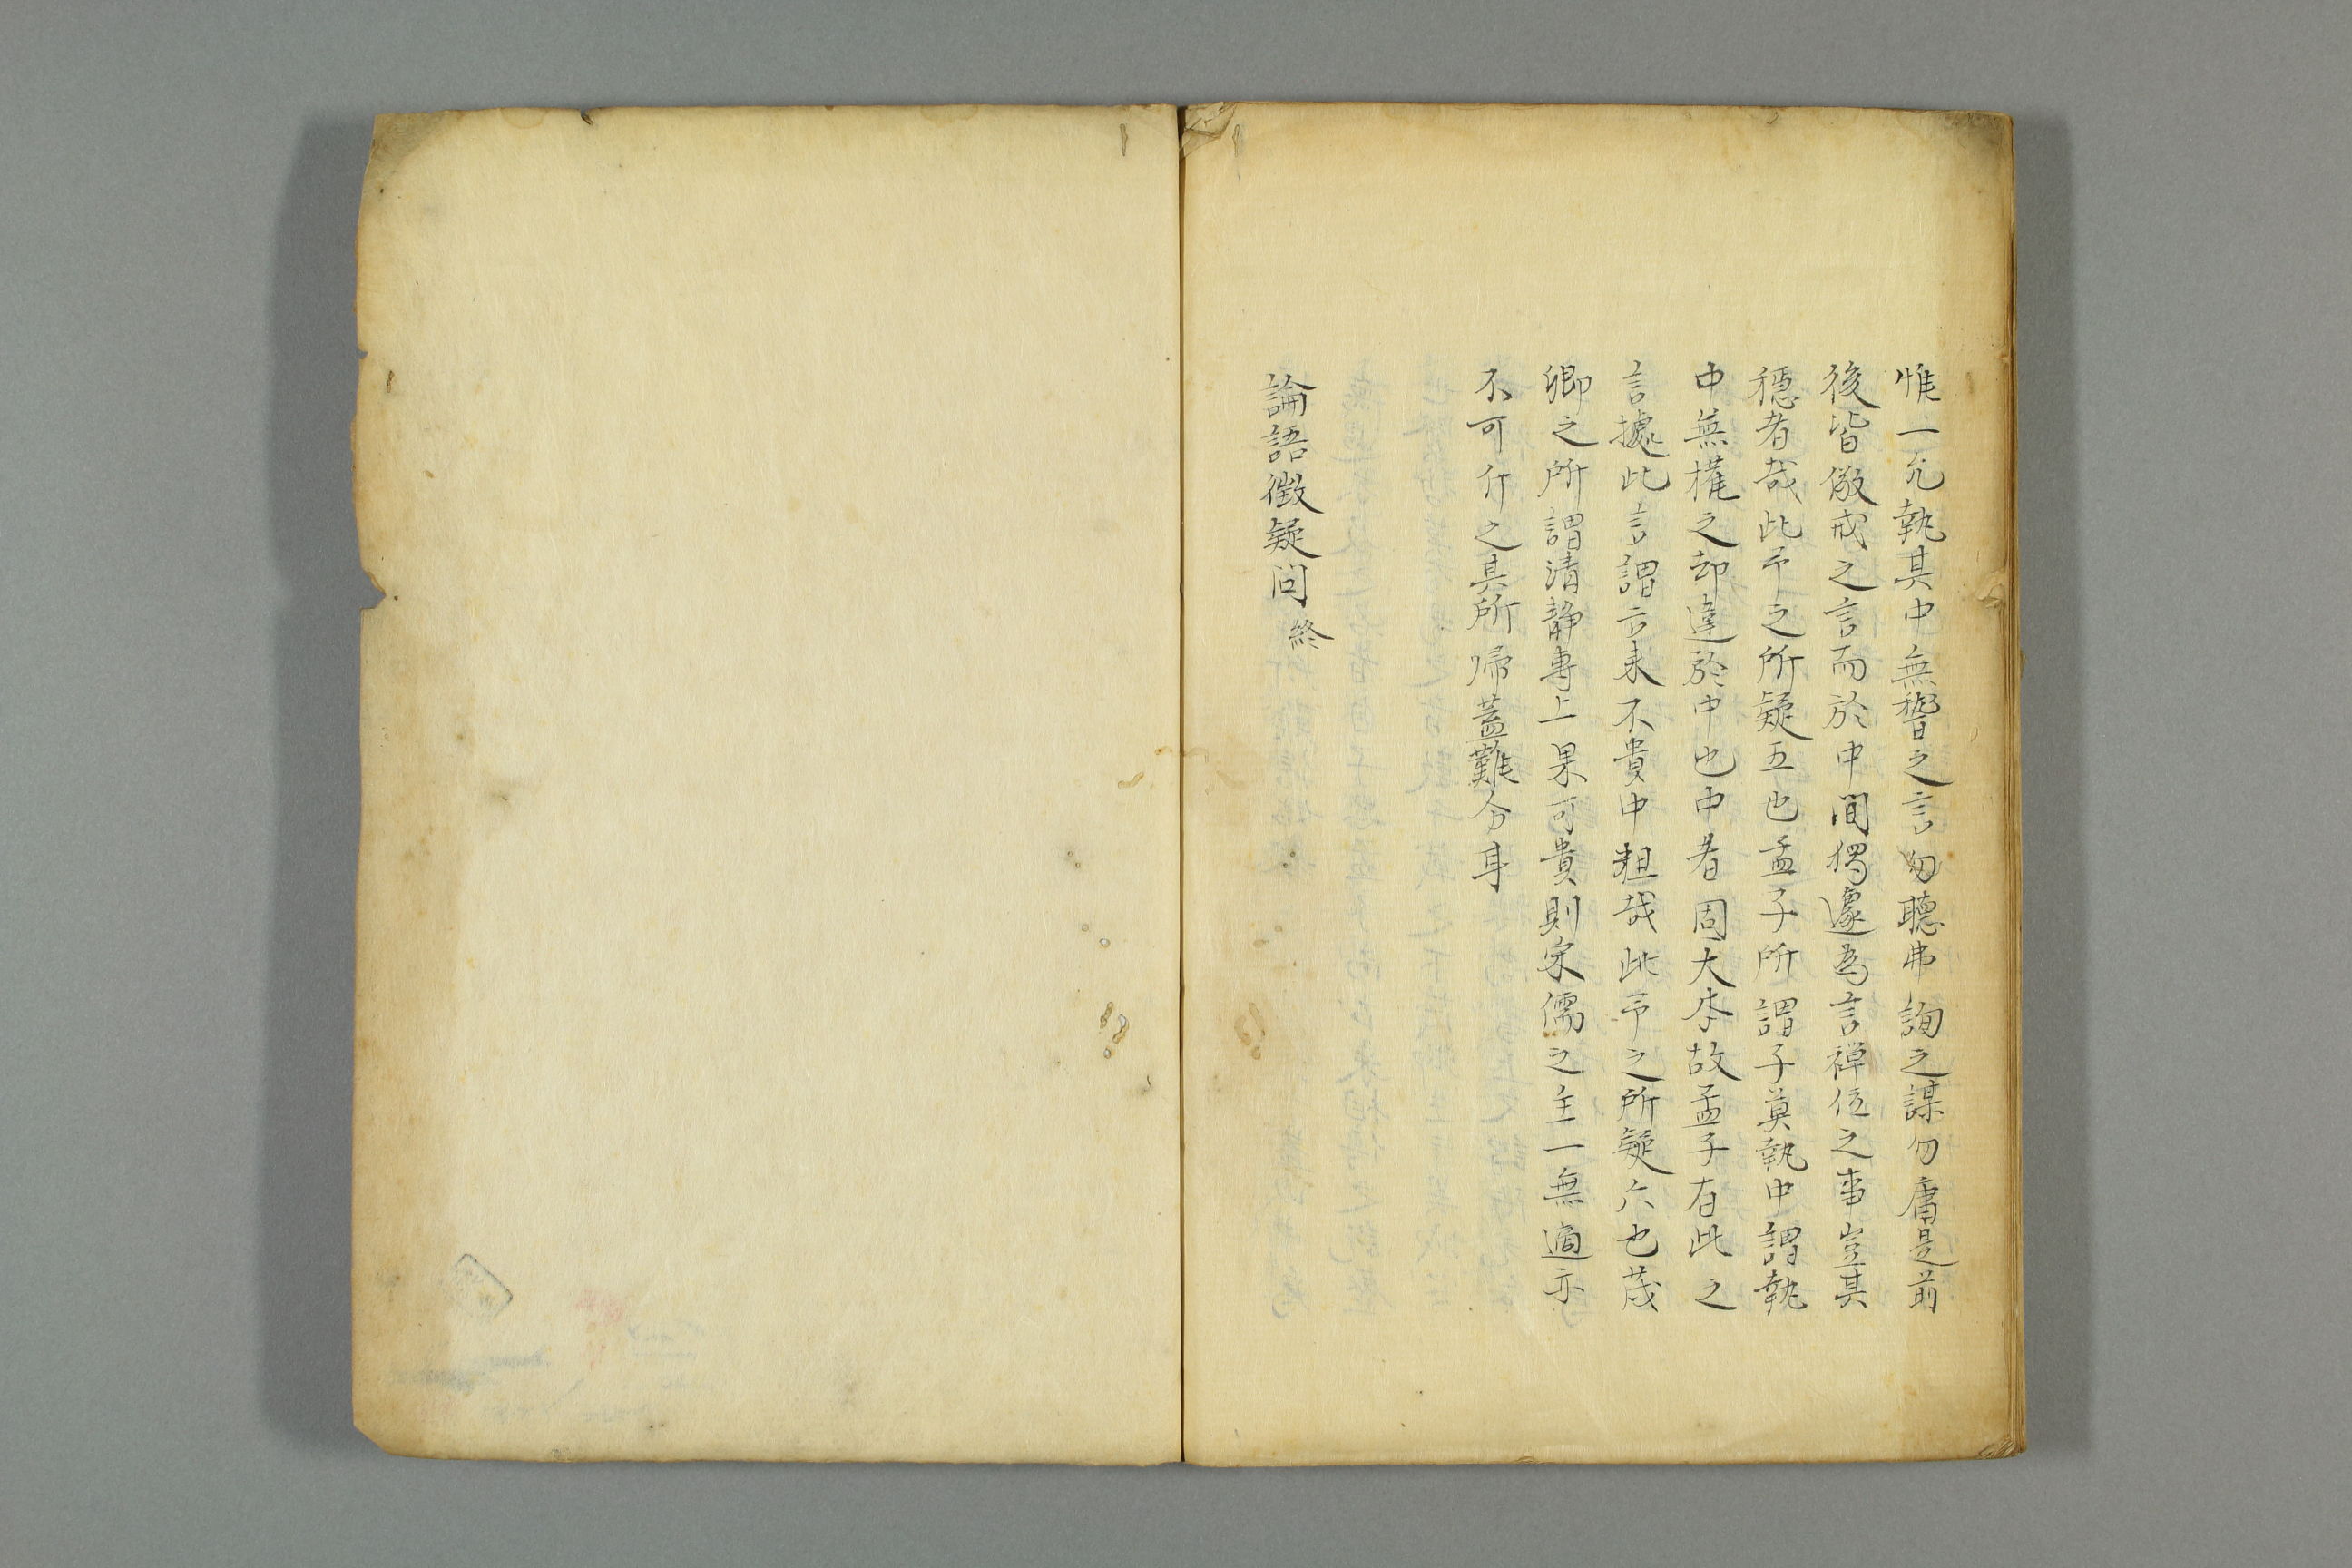 惟一允執其中無稽之言勿聽弗詢之謀勿庸是前
後皆儆戒之言而於中間獨遽為言禪位之事豈其
穩者哉此予之所疑五也孟子所謂子莫執中謂執
中無權之却違於中也中者固大本故孟子有此之
言據此言謂古来不貴中粗哉此予之所疑六也茂
卿之所謂清静專上果可貴則宋儒之主一無適亦
不可行之其所帰蓋難分耳
論語徴疑問終